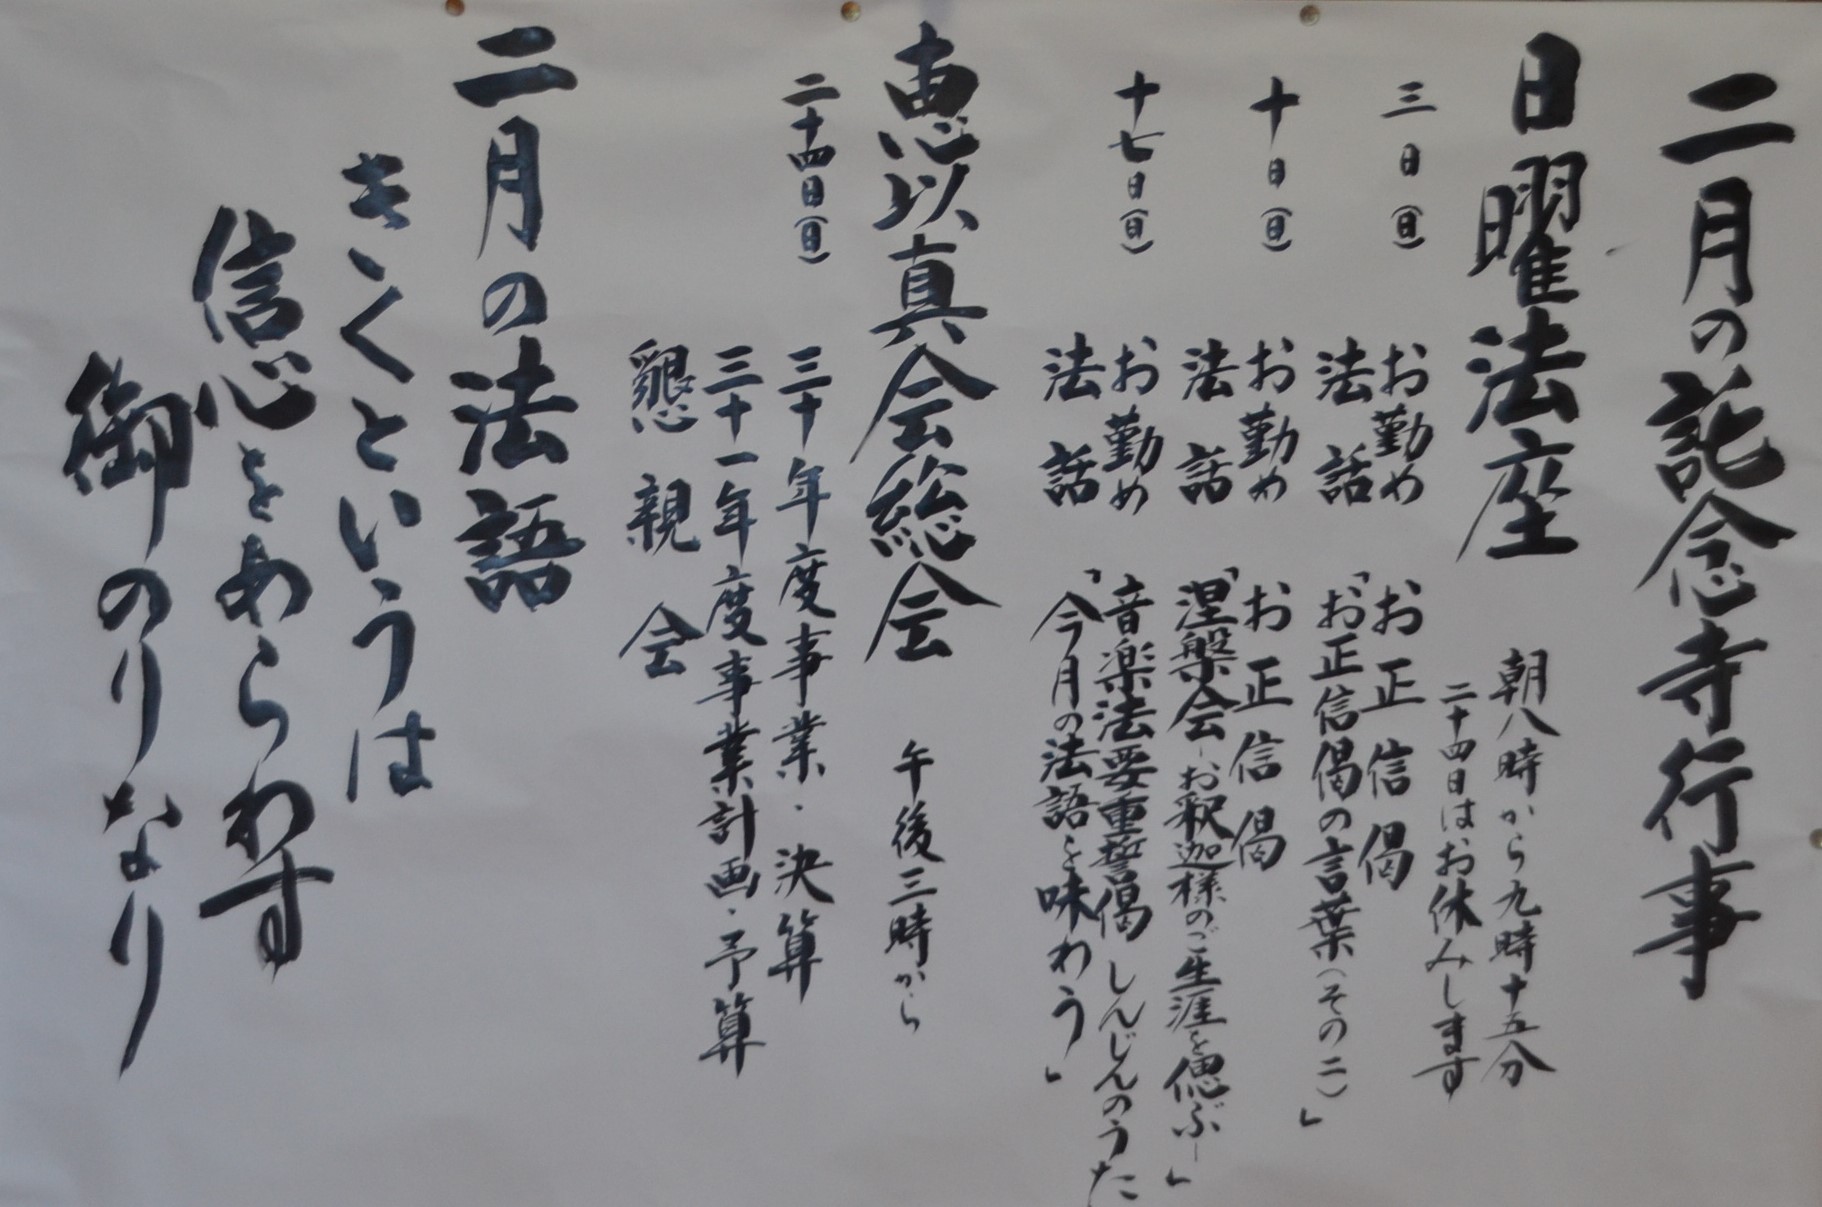 二月の託念寺行事
日曜法座
朝八時から九時十五分
二十四日はお休みします
三日(日)
お勤め お正信偈
法話 「お正信偈の言葉(その二)」
十日(日)
お勤め お正信偈
法話 「涅槃会-お釈迦様のご生涯を偲ぶ-」
十七日(日)
お勤め 音楽法要重誓偈 しんじんのうた
法話 「今月の法語を味わう」
恵以真会総会 午後三時から
二十四日(日)
三十年度事業・決算
三十一年度事業計画・予算
懇親会
二月の法語
きくというは
信心をあらわす
御のりなり